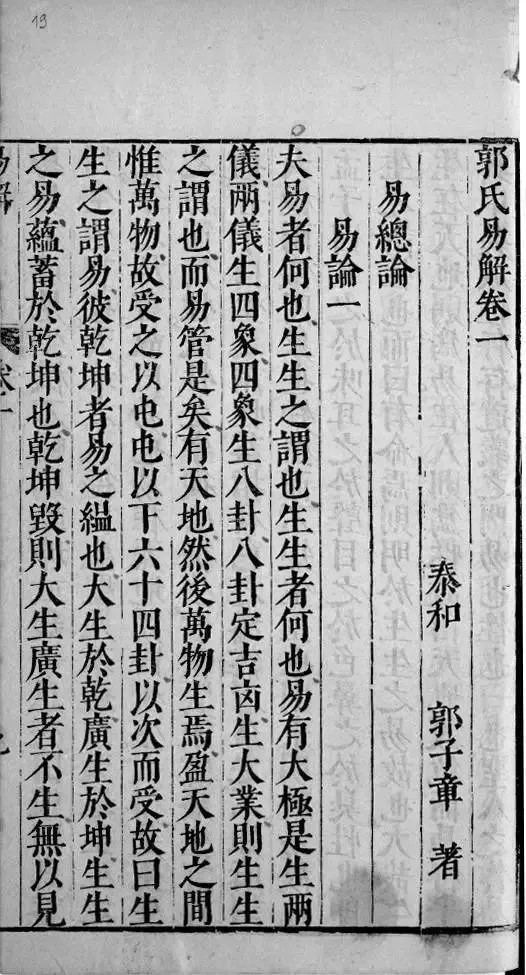 19
郭氏易解卷一
泰和 郭子章 著
易總論
易論一
夫易者何也生生之謂也生生者何也易有大極是生兩
儀兩儀生四象四象生八卦八卦定吉凶生大業則生生
之謂也而易管是矣有天地然後萬物生焉盈天地之間
惟萬物故受之以屯屯以下六十四卦以次而受故曰生
生之謂易彼乾坤者易之縕也大生於乾廣生於坤生生
之易蘊蓄於乾坤也乾坤毀則大生廣生者不生無以見
易解 卷一